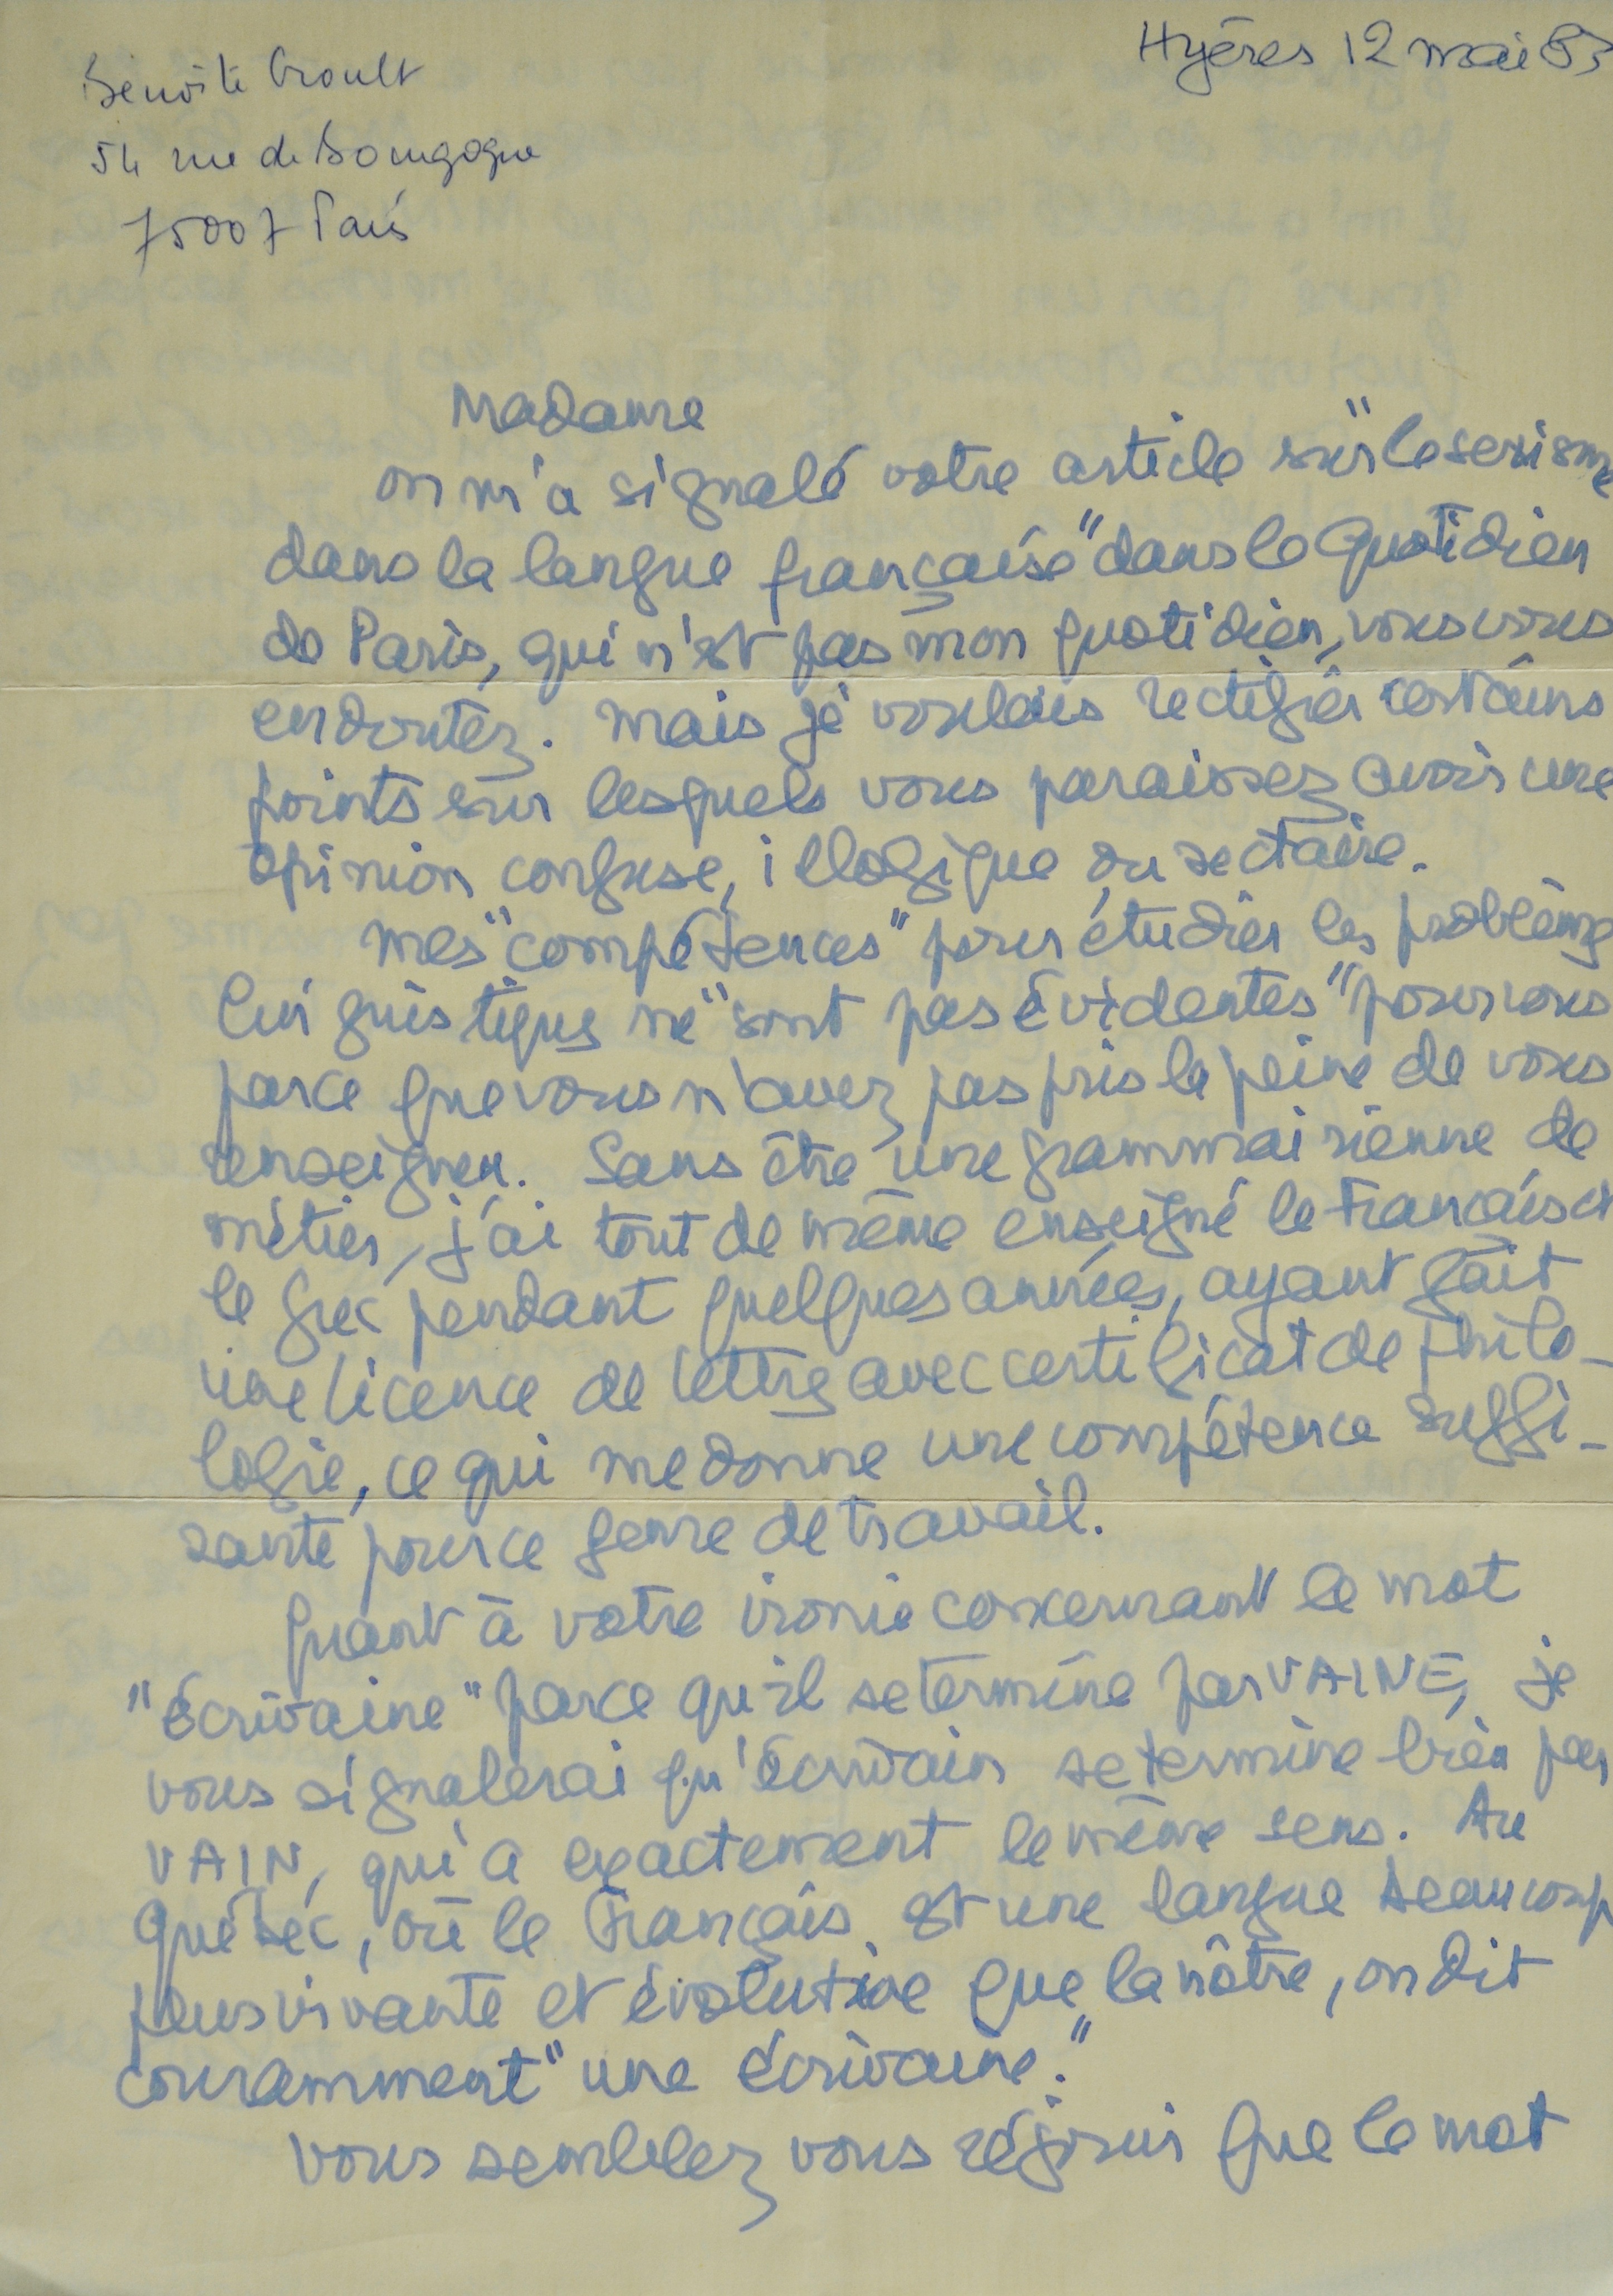 Hyères 12 mai 85
Benoîte Groult
54 rue de Bourgogne
75007 Paris
Madame
on m'a signalé votre article sur "le sexisme
dans la langue française" dans le Quotidien
de Paris, qui n'est pas mon quotidien, vous vous
en doutez. Mais je voulais rectifier certains
points sur lesquels vous paraissez avoir une
opinion confuse, illogique ou sectaire.
Mes "compétences" pour étudier les problèmes
linguistiques ne "sont pas évidentes" pour vous
parce que vous n'avez pas pris la peine de vous
renseigner. Sans être une grammairienne de
métier, j'ai tout de même enseigné le Français et
le grec pendant quelques années, ayant fait
une licence de lettres avec certificat de philo-
logie, ce qui me donne une compétence suffi-
sante pour ce genre de travail.
Quant à votre ironie concernant le mot
"écrivaine" parce qu'il se termine par VAINE, je
vous signalerai qu'écrivain se termine bien par
VAIN, qui a exactement le même sens. Au
Québec, où le Français est une langue beaucoup
plus vivante et évolutive que la nôtre, on dit
couramment "une écrivaine."
Vous semblez vous réjouir que le mot